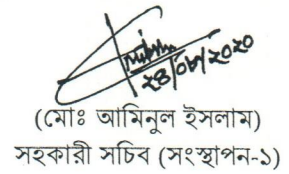 ২৪/০৮/২০২০
(মোঃ আমিনুল ইসলাম)
সহকারী সচিব (সংস্থাপন-১)